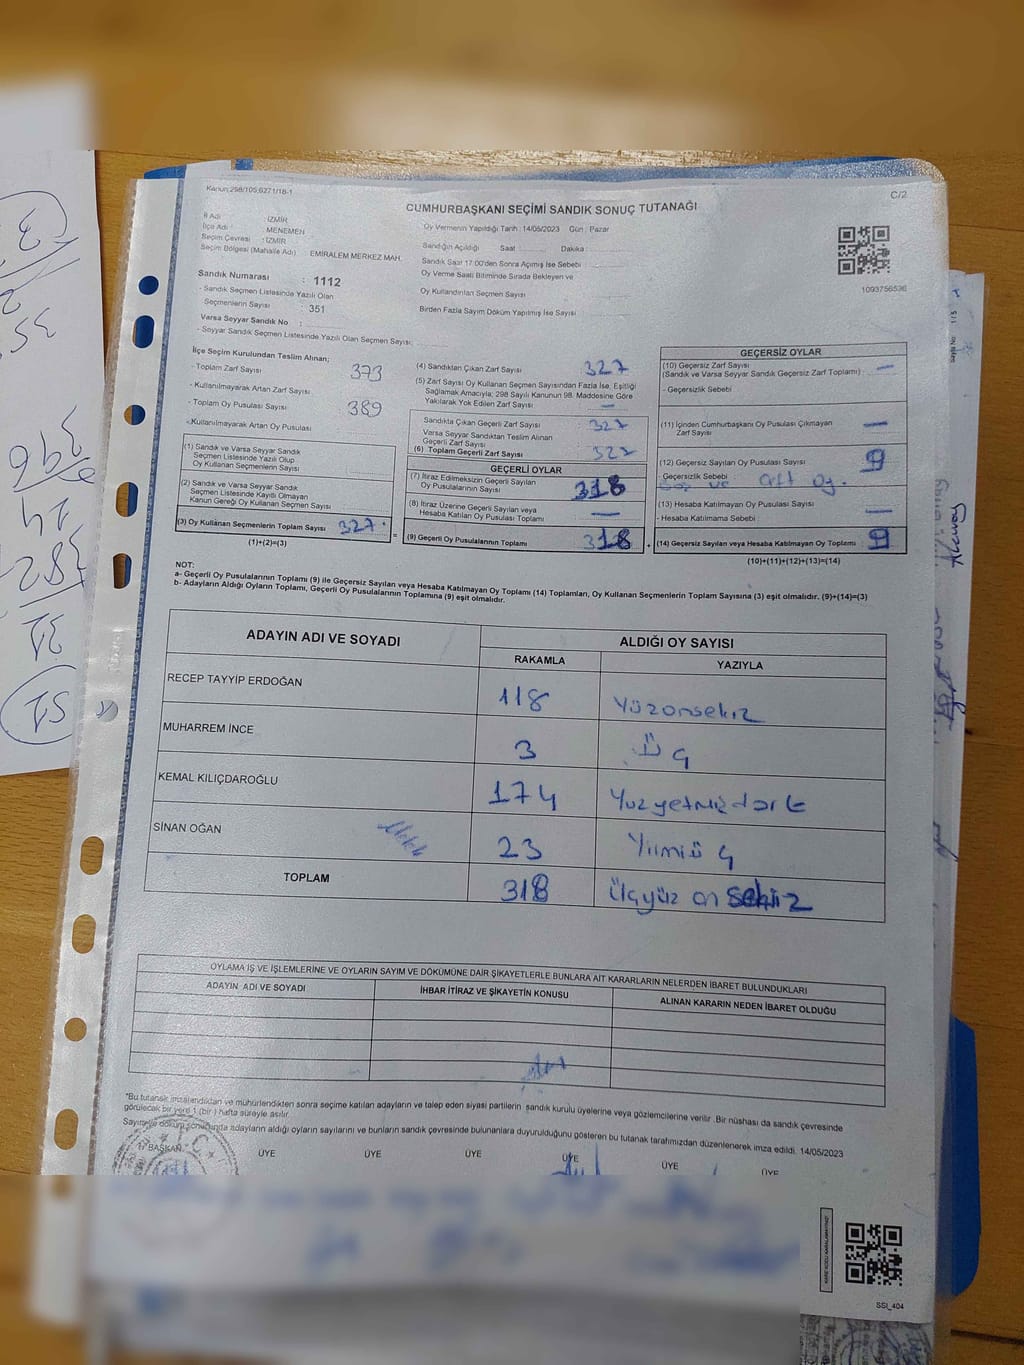 Kanun:298/105;6271/18-1
C/2
CUMHURBAŞKANI SEÇİMİ SANDIK SONUÇ TUTANAĞI
İl Adı : İZMİR
İlçe Adı : MENEMEN
Seçim Çevresi : İZMİR
Seçim Bölgesi (Mahalle Adı) EMİRALEM MERKEZ MAH.
Sandık Numarası : 1112
- Sandık Seçmen Listesinde Yazılı Olan
Seçmenlerin Sayısı : 351
Varsa Seyyar Sandık No :
- Seyyar Sandık Seçmen Listesinde Yazılı Olan Seçmen Sayısı:
Oy Vermenin Yapıldığı Tarih :14/05/2023 Gün : Pazar
Sandığın Açıldığı Saat Dakika
Sandık Saat 17:00'den Sonra Açımış İse Sebebi
Oy Verme Saati Bitiminde Sırada Bekleyen ve
Oy Kullandırılan Seçmen Sayısı
Birden Fazla Sayım Döküm Yapılmış İse Sayısı
1093756536
İlçe Seçim Kurulundan Teslim Alınan;
- Toplam Zarf Sayısı 373
- Kullanılmayarak Artan Zarf Sayısı
- Toplam Oy Pusulası Sayısı 389
- Kullanılmayarak Artan Oy Pusulası
(1) Sandık ve Varsa Seyyar Sandık
Seçmen Listesinde Yazılı Olup
Oy Kullanan Seçmenlerin Sayısı
(2) Sandık ve Varsa Seyyar Sandık
Seçmen Listesinde Kayıtlı Olmayan
Kanun Gereği Oy Kullanan Seçmen Sayısı
(3) Oy Kullanan Seçmenlerin Toplam Sayısı 327
(1)+(2)=(3)
(4) Sandıktan Çıkan Zarf Sayısı 327
(5) Zarf Sayısı Oy Kullanan Seçmen Sayısından Fazla İse, Eşitliği
Sağlamak Amacıyla; 298 Sayılı Kanunun 98. Maddesine Göre
Yakılarak Yok Edilen Zarf Sayısı —
Sandıkta Çıkan Geçerli Zarf Sayısı 327
Varsa Seyyar Sandıktan Teslim Alınan
Geçerli Zarf Sayısı
(6) Toplam Geçerli Zarf Sayısı 327
GEÇERLİ OYLAR
(7) İtiraz Edilmeksizin Geçerli Sayılan
Oy Pusulalarının Sayısı 318
(8) İtiraz Üzerine Geçerli Sayılan veya
Hesaba Katılan Oy Pusulası Toplamı —
(9) Geçerli Oy Pusulalarının Toplamı 318
GEÇERSİZ OYLAR
(10) Geçersiz Zarf Sayısı
(Sandık ve Varsa Seyyar Sandık Geçersiz Zarf Toplamı) —
- Geçersizlik Sebebi
(11) İçinden Cumhurbaşkanı Oy Pusulası Çıkmayan
Zarf Sayısı —
(12) Geçersiz Sayılan Oy Pusulası Sayısı 9
- Geçersizlik Sebebi ve çift oy.
(13) Hesaba Katılmayan Oy Pusulası Sayısı —
- Hesaba Katılmama Sebebi
(14) Geçersiz Sayılan veya Hesaba Katılmayan Oy Toplamı 9
(10)+(11)+(12)+(13)=(14)
NOT:
a- Geçerli Oy Pusulalarının Toplamı (9) ile Geçersiz Sayılan veya Hesaba Katılmayan Oy Toplamı (14) Toplamları, Oy Kullanan Seçmenlerin Toplam Sayısına (3) eşit olmalıdır. (9)+(14)=(3)
b- Adayların Aldığı Oyların Toplamı, Geçerli Oy Pusulalarının Toplamına (9) eşit olmalıdır.
ADAYIN ADI VE SOYADI ALDIĞI OY SAYISI
RAKAMLA YAZIYLA
RECEP TAYYİP ERDOĞAN 118 Yüzonsekiz
MUHARREM İNCE 3 Üç
KEMAL KILIÇDAROĞLU 174 Yüzyetmişdört
SİNAN OĞAN 23 Yirmiüç
TOPLAM 318 Üçyüz on sekiz
OYLAMA İŞ VE İŞLEMLERİNE VE OYLARIN SAYIM VE DÖKÜMÜNE DAİR ŞİKAYETLERLE BUNLARA AİT KARARLARIN NELERDEN İBARET BULUNDUKLARI
ADAYIN ADI VE SOYADI İHBAR İTİRAZ VE ŞİKAYETİN KONUSU ALINAN KARARIN NEDEN İBARET OLDUĞU
*Bu tutanak imzalandıktan ve mühürlendikten sonra seçime katılan adayların ve talep eden siyasi partilerin sandık kurulu üyelerine veya gözlemcilerine verilir. Bir nüshası da sandık çevresinde
görülecek bir yere 1 (bir) hafta süreyle asılır.
Sayım ve döküm sonucunda adayların aldığı oyların sayılarını ve bunların sandık çevresinde bulunanlara duyurulduğunu gösteren bu tutanak tarafımızdan düzenlenerek imza edildi. 14/05/2023
BAŞKAN ÜYE ÜYE ÜYE ÜYE ÜYE ÜYE
SSİ_404